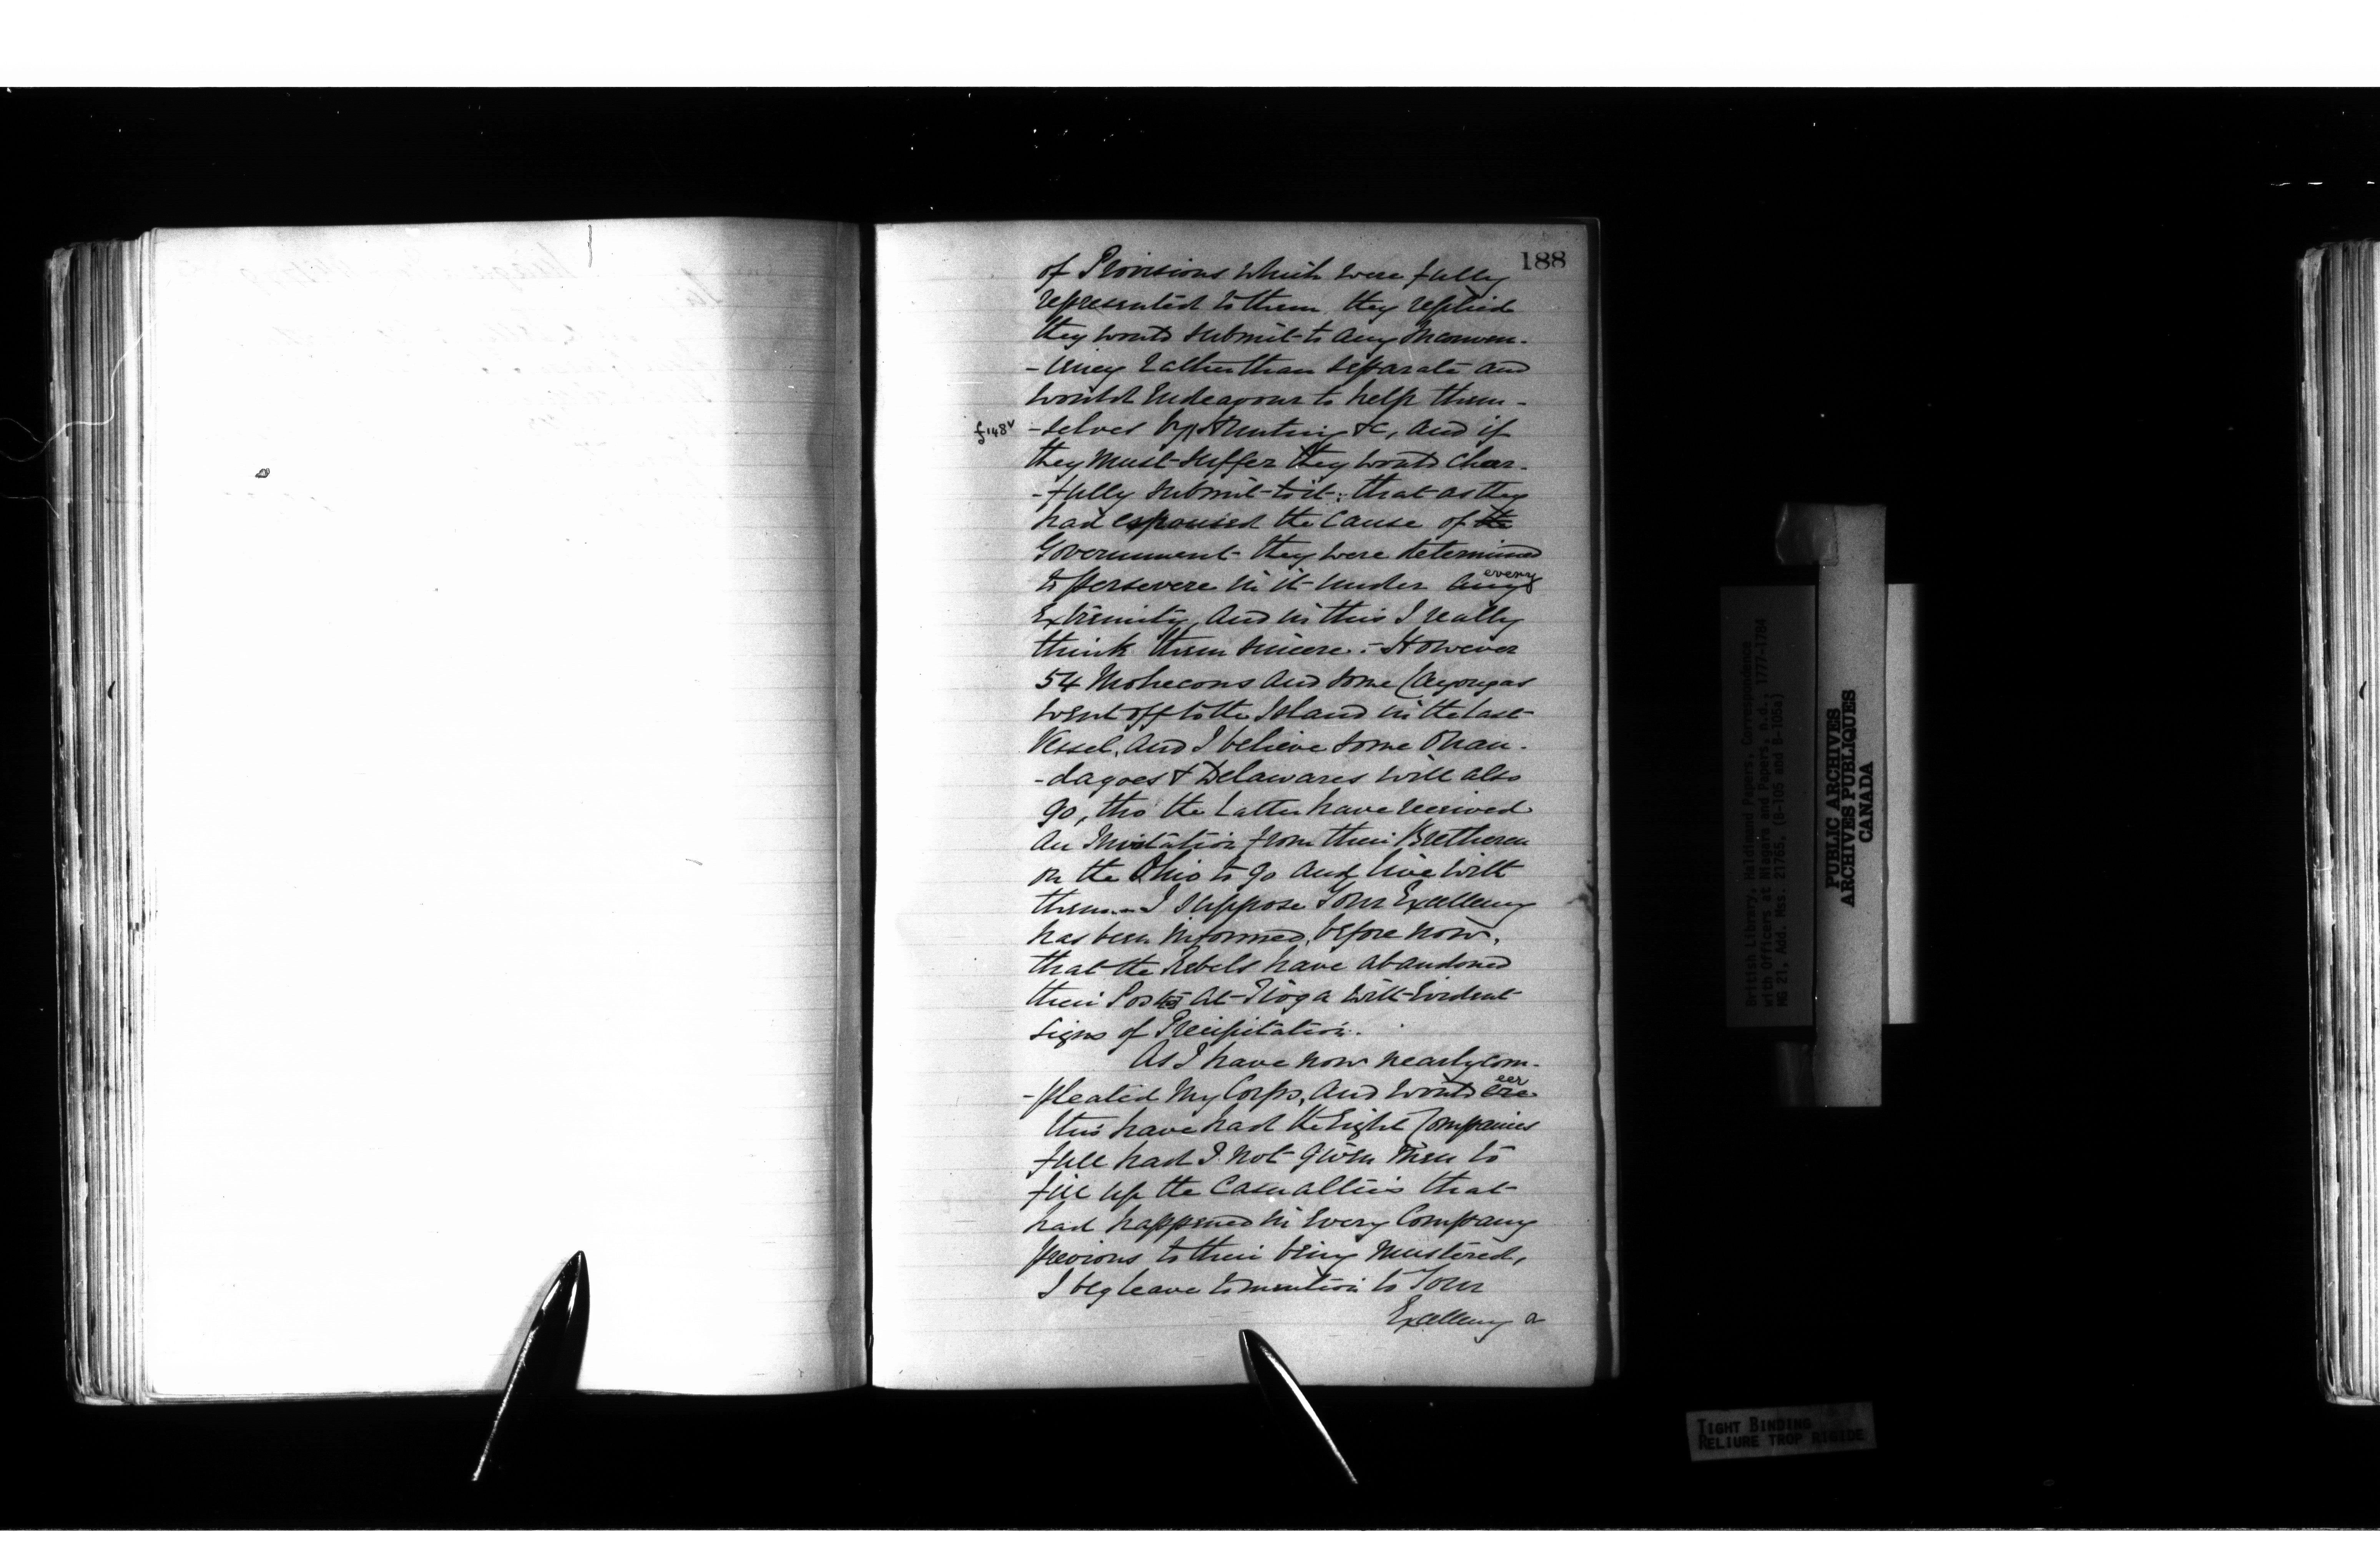 188
of Provisions which were fully
represented to them, they replied
they would submit to any Inconven-
-iency rather than separate and
would Endeavour to help them-
f148v
-selves by Hunting &c, and if
they must suffer they would chear-
-fully submit to it: that as they
had espoused the Cause of the
Government they were determined
to persevere in it under any every
Extremity, and in this I really
think them sincere. - However
54 Mohecons and some Cayougas
went off to the Island in the last
Vessel, and I believe some Onan-
-dagoes & Delawares will also
go, tho' the Latter have received
an Invitation from their Bretheren
on the Ohio to go and live with
them. - I suppose Your Excellency
has been informed, before now,
that the Rebels have abandoned
their Posts at Tioga with Evident
signs of Precipitation.
As I have now nearly com-
-pleated my Corps, and would ere eer
this have had the Eight Companies
full had I not given Men to
fill up the Casualties that
had happened in Every Company
previous to their being mustered,
I beg leave to mention to Your
Excellency a
British Library, Haldimand Papers, Correspondence
with Officers at Niagara and Papers, n.d., 1777-1784
MG 21, Add. Mss. 21765, (B-105 and B-105a)
PUBLIC ARCHIVES
ARCHIVES PUBLIQUES
CANADA
TIGHT BINDING
RELIURE TROP RIGIDE